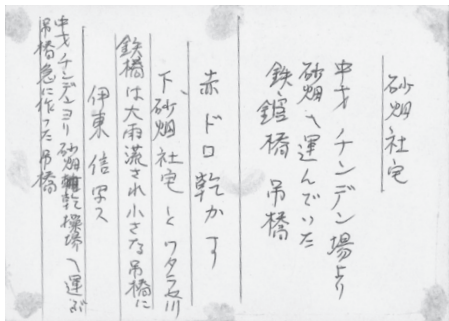 砂畑社宅
中才チンデン場より
砂畑へ運んでいた
鉄鎧橋 吊橋
赤ドロ乾かす
下、砂畑社宅とワタラセ川
鉄橋は大雨流され小さな吊橋に
伊東信写ス
中才チンデンヨリ砂畑乾操場へ運ぶ
吊橋急に作った吊橋